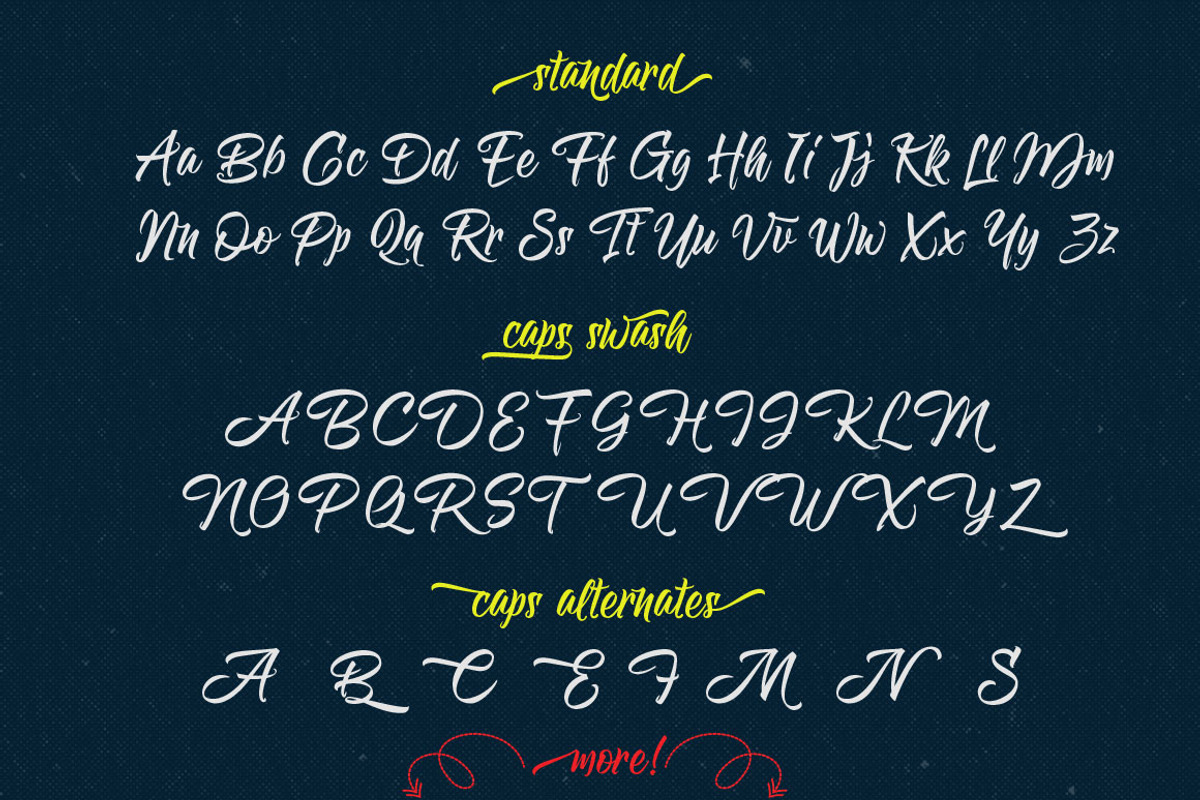 standard
Aa Bb Cc Dd Ee Ff Gg Hh Ii Jj Kk Ll Mm
Nn Oo Pp Qq Rr Ss Tt Uu Vv Ww Xx Yy Zz
caps swash
A B C D E F G H I J K L M
N O P Q R S T U V W X Y Z
caps alternates
A B C E F M N S
more!